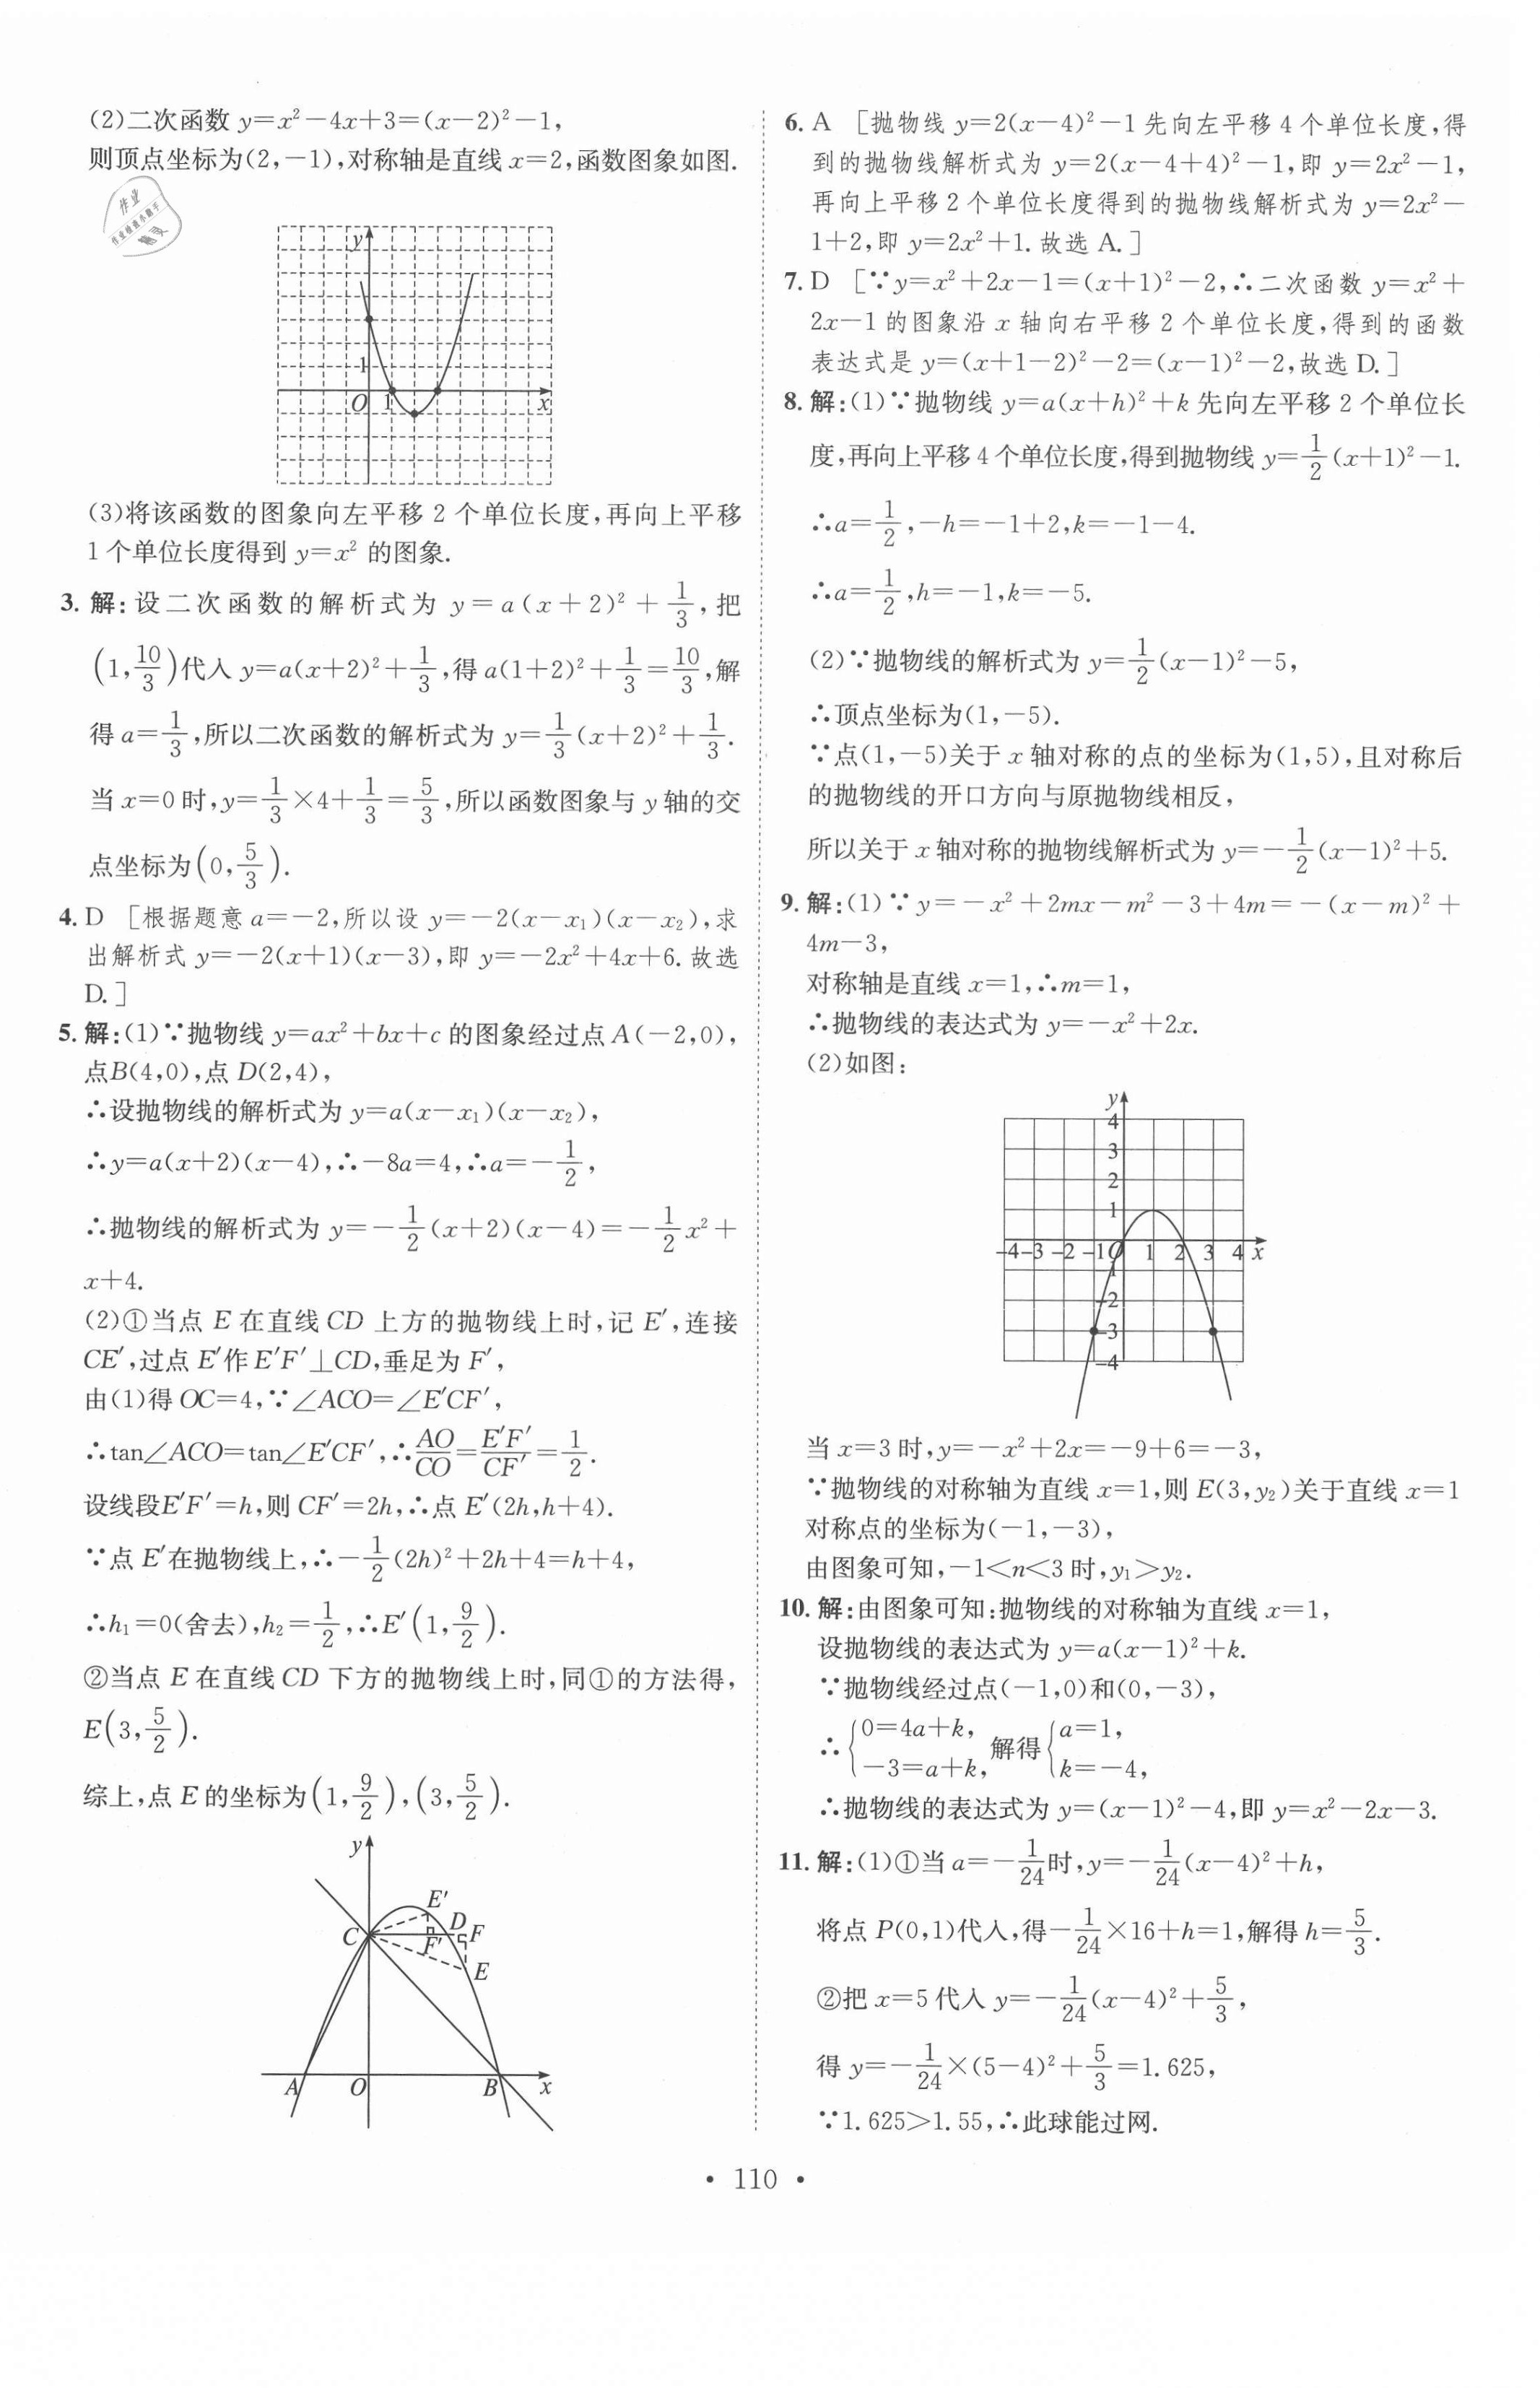 (2)二次函数 y=x²-4x+3=(x-2)²-1,
则顶点坐标为(2,-1),对称轴是直线 x=2,函数图象如图.
作业
y
1
O 1 x
(3)将该函数的图象向左平移 2 个单位长度,再向上平移
1 个单位长度得到 y=x² 的图象.
3. 解:设二次函数的解析式为 y=a(x+2)²+1/3,把
(1,10/3)代入 y=a(x+2)²+1/3,得 a(1+2)²+1/3=10/3,解
得 a=1/3,所以二次函数的解析式为 y=1/3(x+2)²+1/3.
当 x=0 时,y=1/3×4+1/3=5/3,所以函数图象与 y 轴的交
点坐标为(0,5/3).
4. D [根据题意 a=-2,所以设 y=-2(x-x₁)(x-x₂),求
出解析式 y=-2(x+1)(x-3),即 y=-2x²+4x+6.故选
D.]
5. 解:(1)∵抛物线 y=ax²+bx+c 的图象经过点 A(-2,0),
点B(4,0),点 D(2,4),
∴设抛物线的解析式为 y=a(x-x₁)(x-x₂),
∴y=a(x+2)(x-4),∴-8a=4,∴a=-1/2,
∴抛物线的解析式为 y=-1/2(x+2)(x-4)=-1/2x²+
x+4.
(2)①当点 E 在直线 CD 上方的抛物线上时,记 E′,连接
CE′,过点 E′作 E′F′⊥CD,垂足为 F′,
由(1)得 OC=4,∵∠ACO=∠E′CF′,
∴tan∠ACO=tan∠E′CF′,∴AO/CO=E′F′/CF′=1/2.
设线段E′F′=h,则 CF′=2h,∴点 E′(2h,h+4).
∵点 E′在抛物线上,∴-1/2(2h)²+2h+4=h+4,
∴h₁=0(舍去),h₂=1/2,∴E′(1,9/2).
②当点 E 在直线 CD 下方的抛物线上时,同①的方法得,
E(3,5/2).
综上,点 E 的坐标为(1,9/2),(3,5/2).
y
E′
C D F
F′
E
A O B x
6. A [抛物线 y=2(x-4)²-1 先向左平移 4 个单位长度,得
到的抛物线解析式为 y=2(x-4+4)²-1,即 y=2x²-1,
再向上平移 2 个单位长度得到的抛物线解析式为 y=2x²-
1+2,即 y=2x²+1.故选 A.]
7. D [∵y=x²+2x-1=(x+1)²-2,∴二次函数 y=x²+
2x-1 的图象沿 x 轴向右平移 2 个单位长度,得到的函数
表达式是 y=(x+1-2)²-2=(x-1)²-2,故选 D.]
8. 解:(1)∵抛物线 y=a(x+h)²+k 先向左平移 2 个单位长
度,再向上平移 4 个单位长度,得到抛物线 y=1/2(x+1)²-1.
∴a=1/2,-h=-1+2,k=-1-4.
∴a=1/2,h=-1,k=-5.
(2)∵抛物线的解析式为 y=1/2(x-1)²-5,
∴顶点坐标为(1,-5).
∵点(1,-5)关于 x 轴对称的点的坐标为(1,5),且对称后
的抛物线的开口方向与原抛物线相反,
所以关于 x 轴对称的抛物线解析式为 y=-1/2(x-1)²+5.
9. 解:(1)∵y=-x²+2mx-m²-3+4m=-(x-m)²+
4m-3,
对称轴是直线 x=1,∴m=1,
∴抛物线的表达式为 y=-x²+2x.
(2)如图:
y
4
3
2
1
-4 -3 -2 -1 O 1 2 3 4 x
-1
-2
-3
-4
当 x=3 时,y=-x²+2x=-9+6=-3,
∵抛物线的对称轴为直线 x=1,则 E(3,y₂)关于直线 x=1
对称点的坐标为(-1,-3),
由图象可知,-1<n<3 时,y₁>y₂.
10. 解:由图象可知:抛物线的对称轴为直线 x=1,
设抛物线的表达式为 y=a(x-1)²+k.
∵抛物线经过点(-1,0)和(0,-3),
∴{0=4a+k, -3=a+k, 解得{a=1, k=-4,
∴抛物线的表达式为 y=(x-1)²-4,即 y=x²-2x-3.
11. 解:(1)①当 a=-1/24时,y=-1/24(x-4)²+h,
将点 P(0,1)代入,得-1/24×16+h=1,解得 h=5/3.
②把 x=5 代入 y=-1/24(x-4)²+5/3,
得 y=-1/24×(5-4)²+5/3=1.625,
∵1.625>1.55,∴此球能过网.
• 110 •